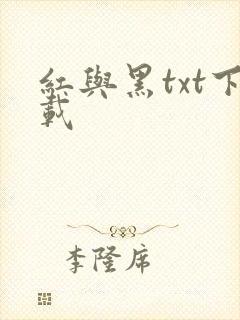 紅與黑txt下
載
李隆席